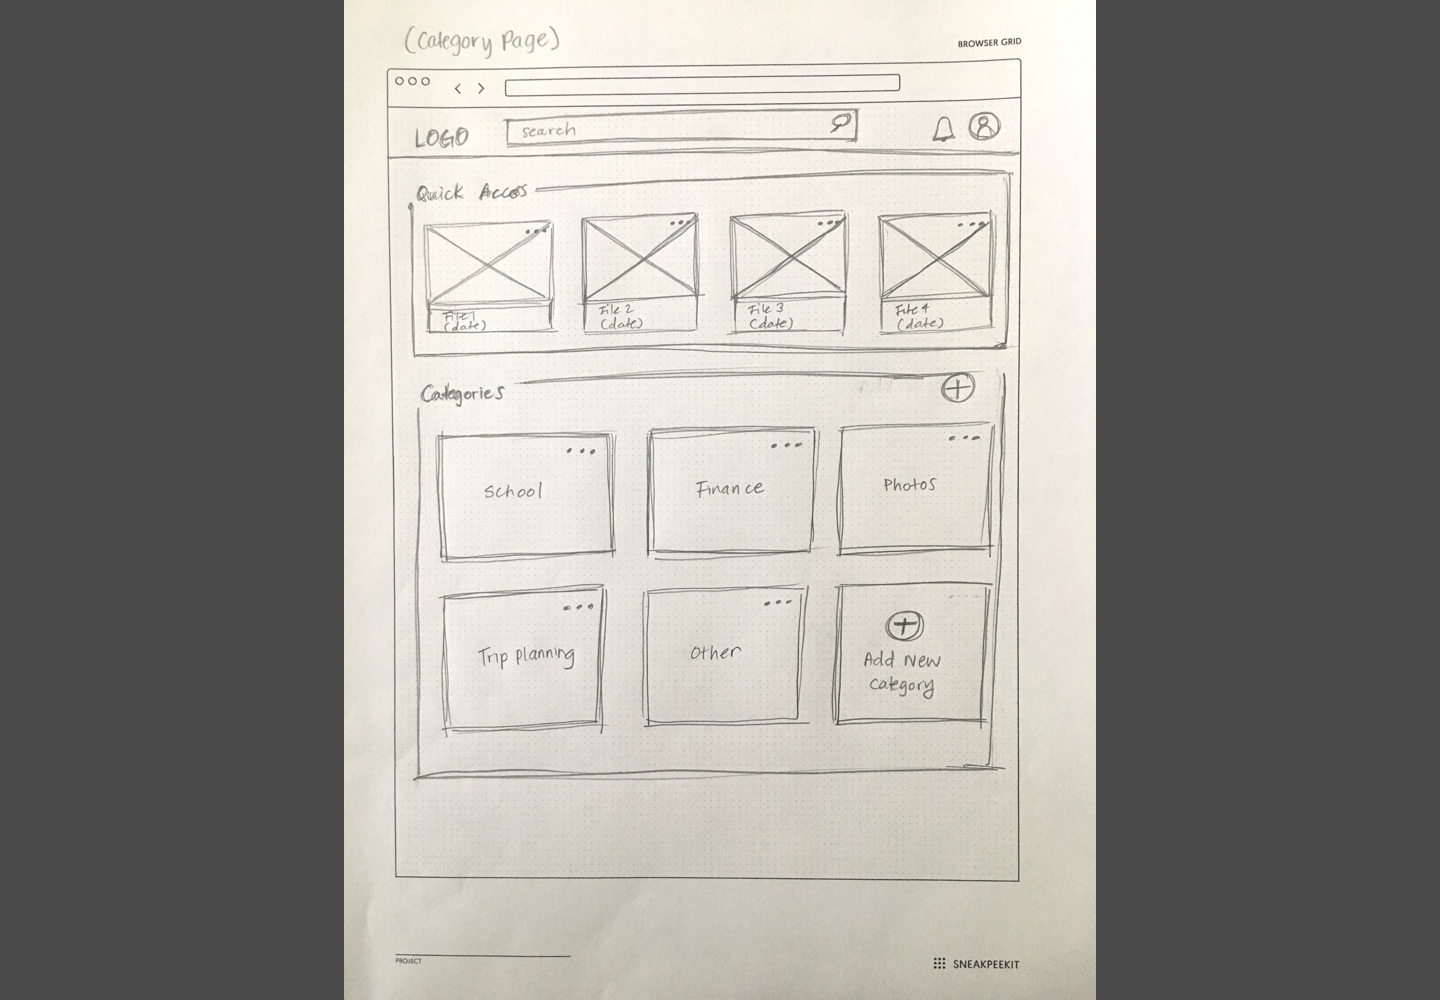 (Category Page)
BROWSER GRID
LOGO
search
Quick Access
File 1
(date)
File 2
(date)
File 3
(date)
File 4
(date)
Categories
School
Finance
Photos
Trip planning
Other
Add New
Category
PROJECT
SNEAKPEEKIT